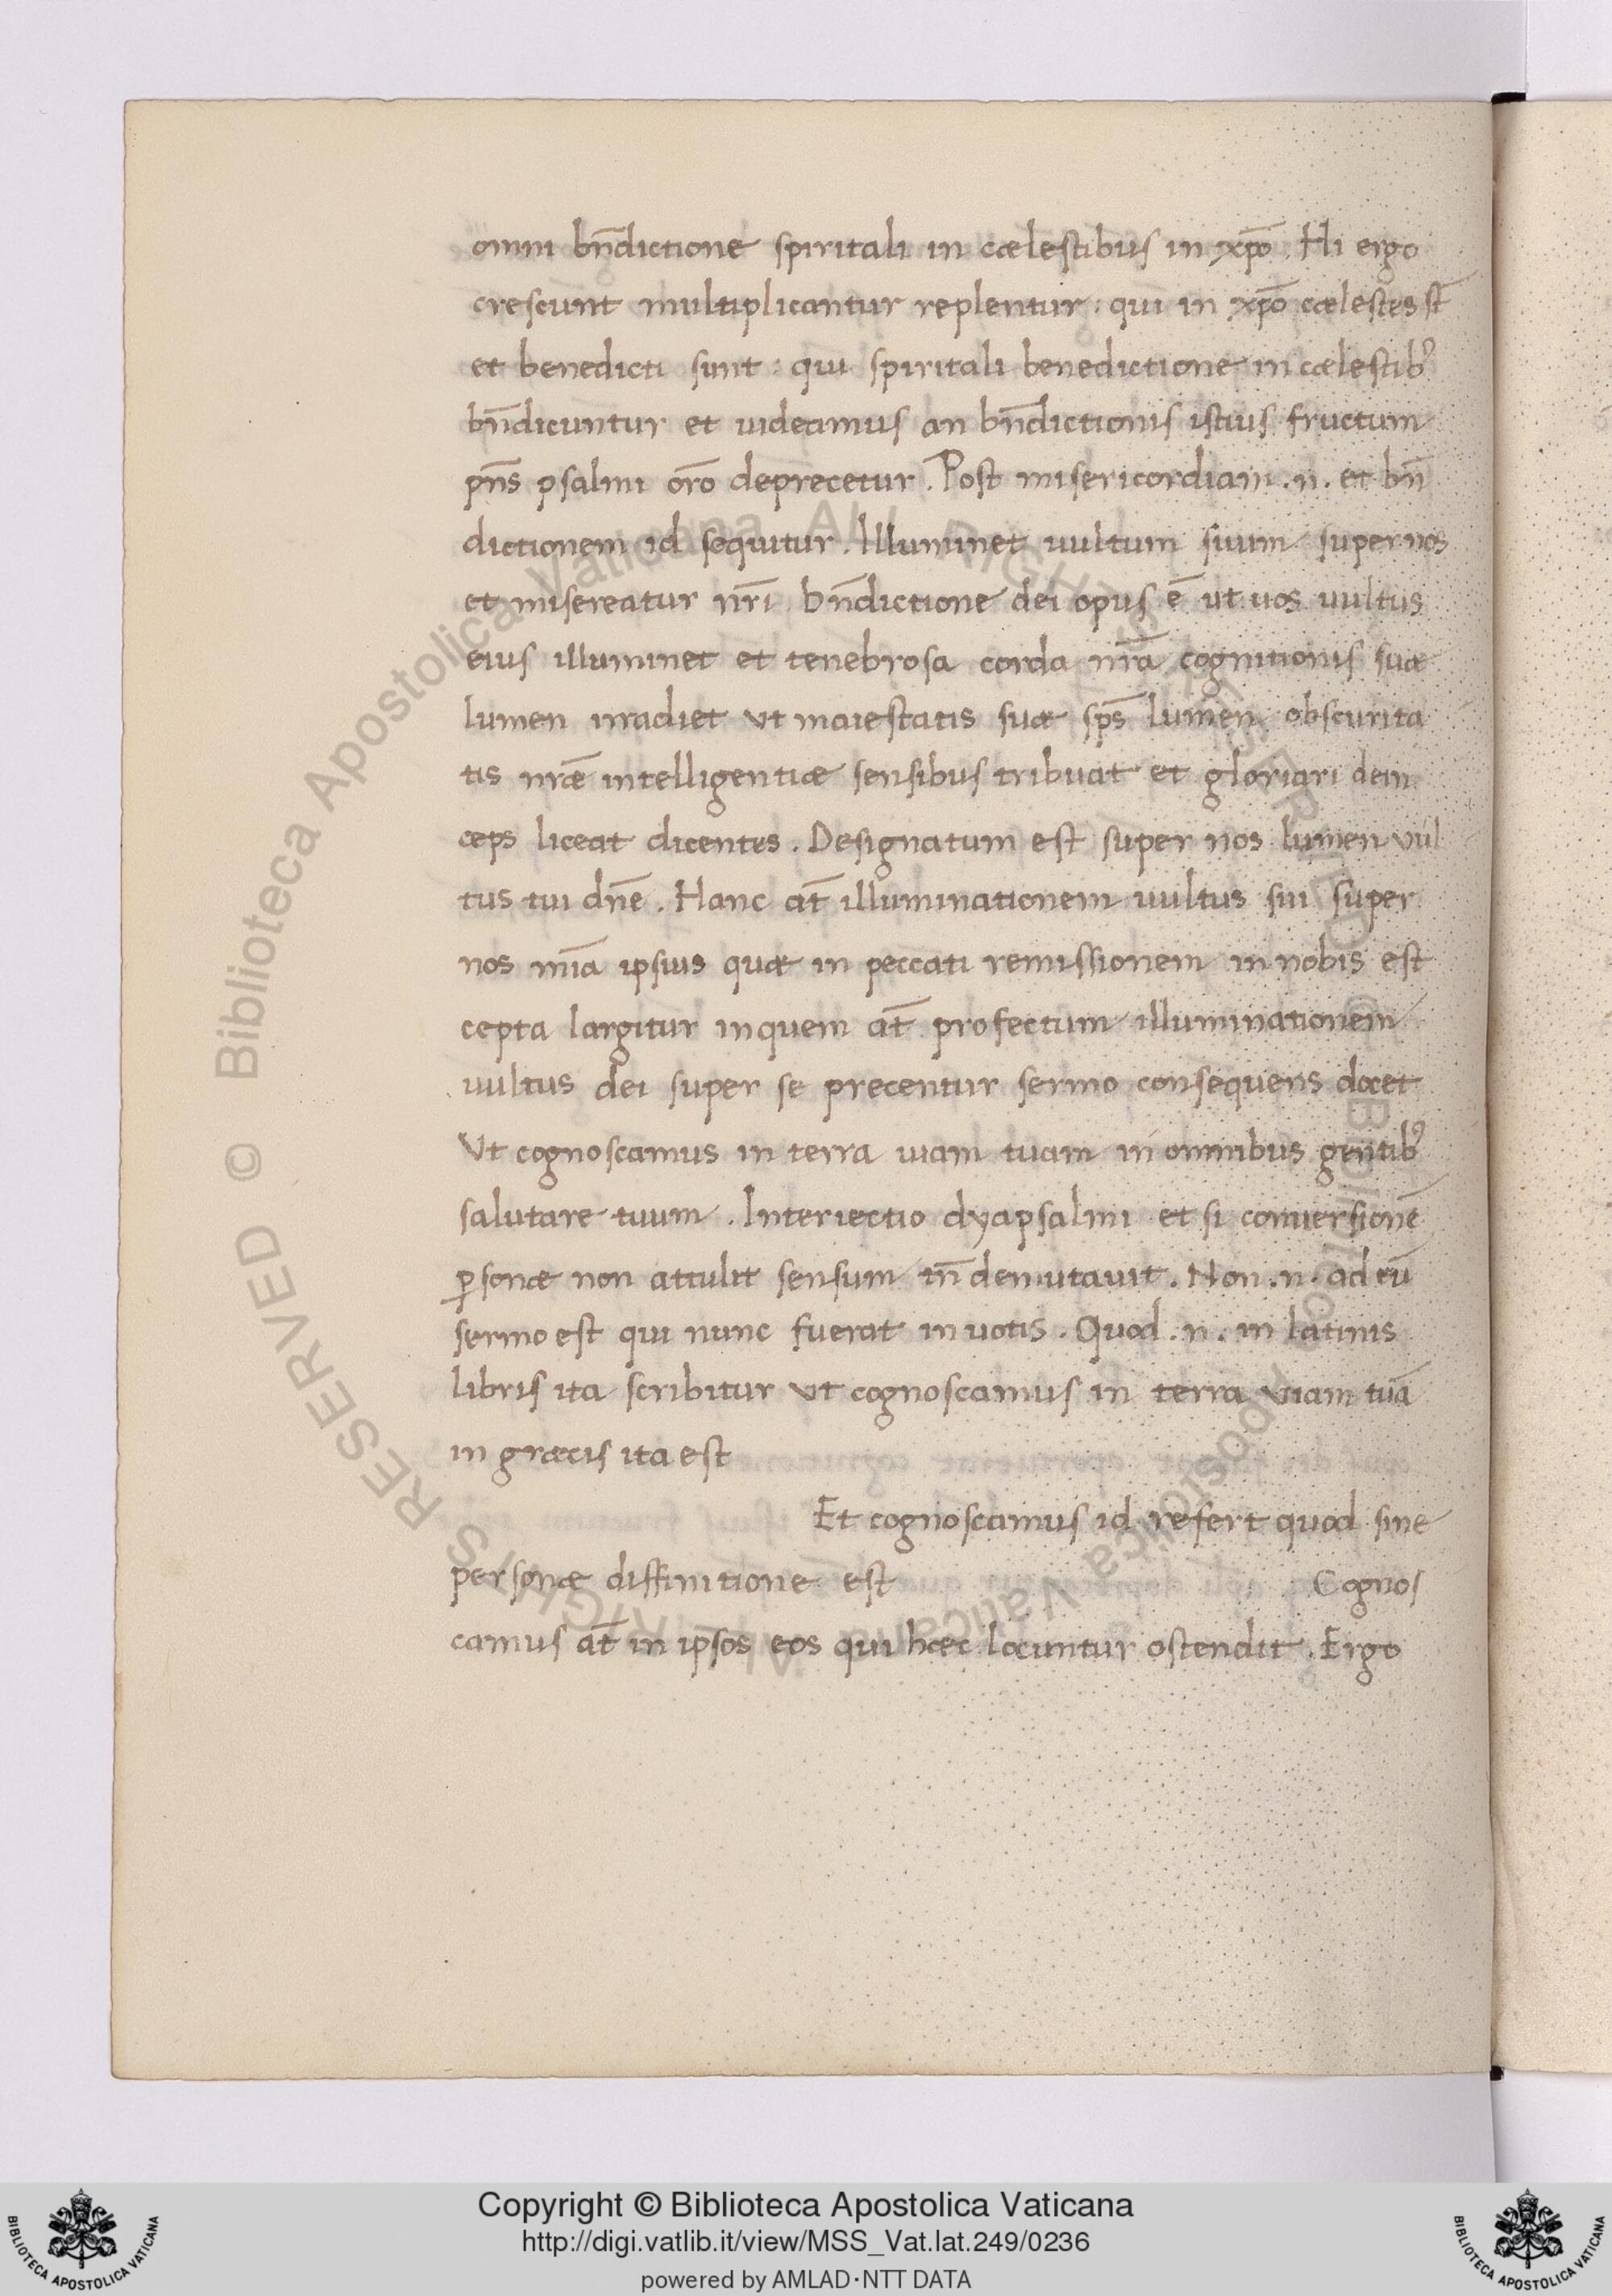 omni bn̄dictione spiritali in cælestibus in xp̄o. Hi ergo
crescunt multiplicantur replentur: qui in xp̄o cælestes st̄
et benedicti sunt: qui spiritali benedictione in cælestibꝰ
bn̄dicuntur et uideamus an bn̄dictionis istius fructum
pn̄s psalmi or̄o deprecetur. Post misericordiam .n. et bn̄
dictionem id sequitur. Illuminet uultum suum super nos
et misereatur nr̄i. bn̄dictione dei opus ē ut uos uultus
eius illuminet et tenebrosa corda nr̄a cognitionis suæ
lumen irradiet ut maiestatis suæ sp̄s lumen obscurita
tis nr̄æ intelligentiæ sensibus tribuat et gloriari dein
ceps liceat dicentes. Designatum est super nos lumen vul
tus tui dn̄e. Hanc at̄ illuminationem uultus sui super
nos mīa ipsius quæ in peccati remissionem in nobis est
cepta largitur in quem at̄ profectum illuminationem
uultus dei super se precentur sermo consequens docet
Vt cognoscamus in terra uiam tuam in omnibus gentibꝰ
salutare tuum. Interiectio dyapsalmi et si conuersionē
ꝑsonæ non attulit sensum tn̄ demutauit. Non .n. ad eū
sermo est qui nunc fuerat in uotis. Quod .n. in latinis
libris ita scribitur vt cognoscamus in terra viam tuā
in græcis ita est
Et cognoscamus id refert quod sine
personæ diffinitione est Cognos
camus at̄ in ipsos eos qui hæc locuntur ostendit. Ergo
© Biblioteca Apostolica Vaticana ALL RIGHTS RESERVED © Biblioteca Apostolica Vaticana ALL RIGHTS RESERVED
Copyright © Biblioteca Apostolica Vaticana
http://digi.vatlib.it/view/MSS_Vat.lat.249/0236
powered by AMLAD·NTT DATA
BIBLIOTECA APOSTOLICA VATICANA
BIBLIOTECA APOSTOLICA VATICANA